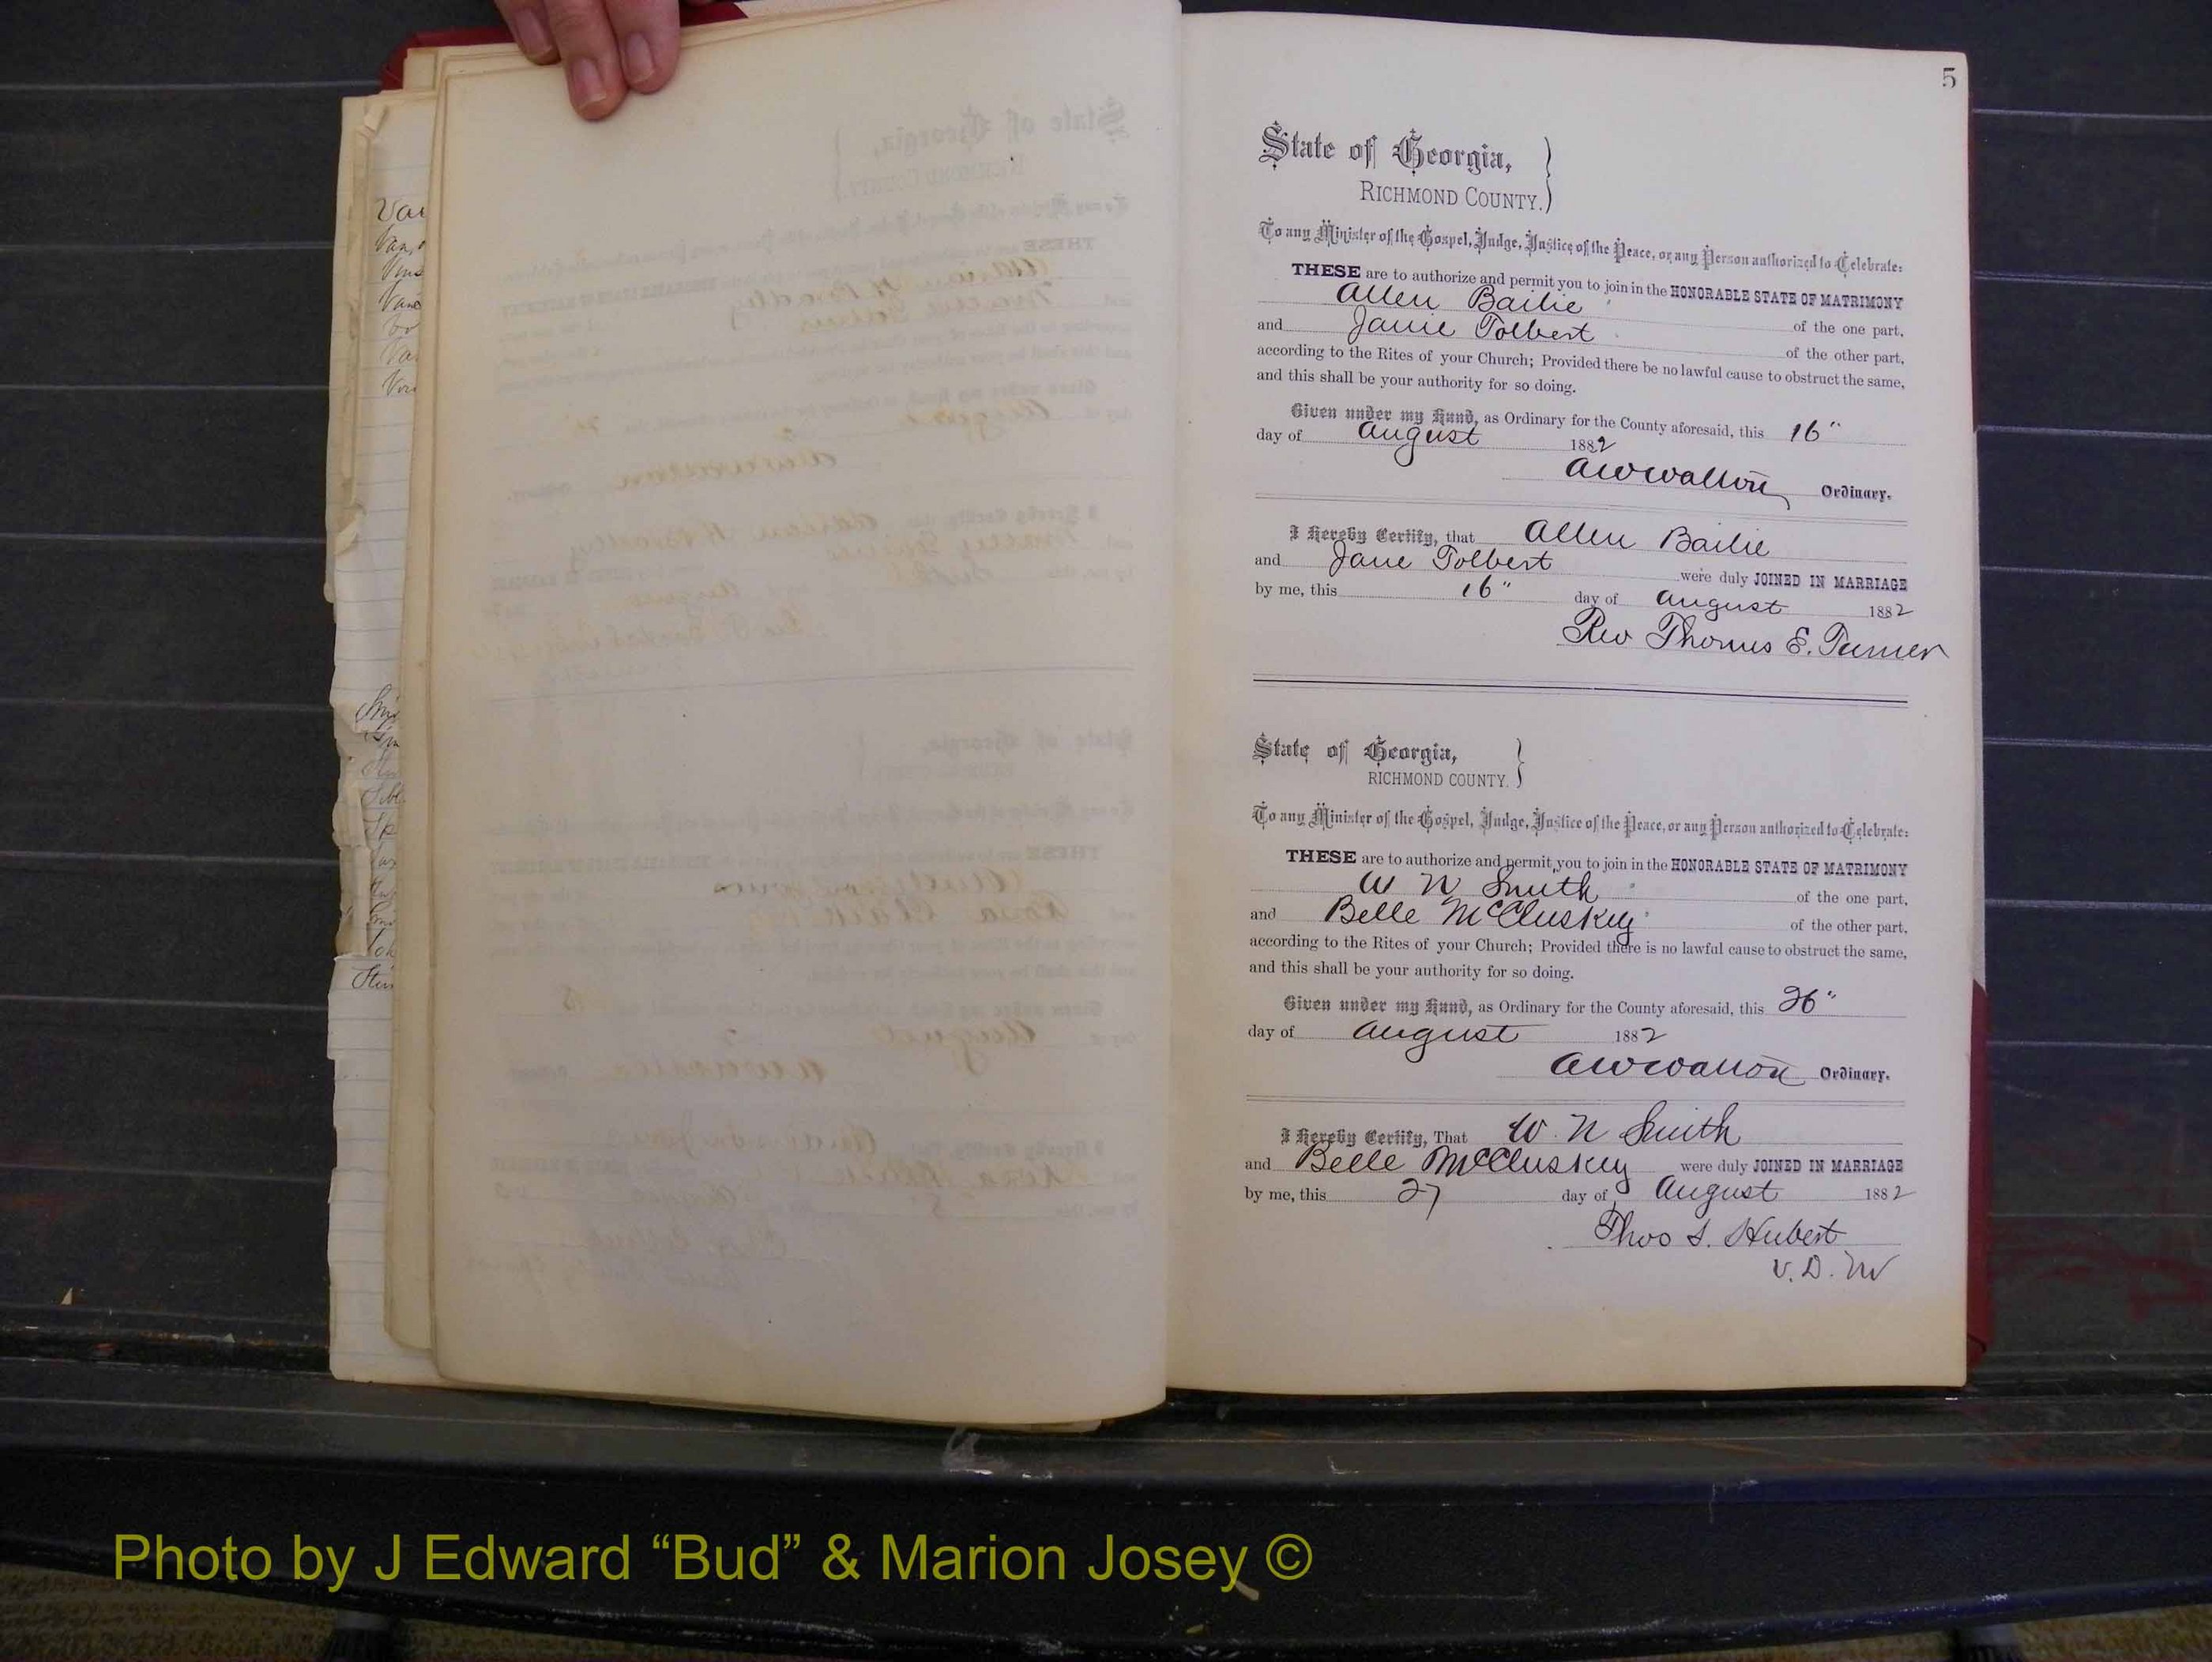 5
State of Georgia,
RICHMOND COUNTY.
To any Minister of the Gospel, Judge, Justice of the Peace, or any Person authorized to Celebrate:
THESE are to authorize and permit you to join in the HONORABLE STATE OF MATRIMONY
Allen Bailie of the one part,
and Janie Tolbert of the other part,
according to the Rites of your Church; Provided there be no lawful cause to obstruct the same,
and this shall be your authority for so doing.
Given under my Hand, as Ordinary for the County aforesaid, this 16"
day of August 1882
A W Walton Ordinary.
I Hereby Certify, that Allen Bailie
and Jane Tolbert were duly JOINED IN MARRIAGE
by me, this 16" day of August 1882
Rev Thomas E. Turner
State of Georgia,
RICHMOND COUNTY.
To any Minister of the Gospel, Judge, Justice of the Peace, or any Person authorized to Celebrate:
THESE are to authorize and permit you to join in the HONORABLE STATE OF MATRIMONY
W N Smith of the one part,
and Belle McCluskey of the other part,
according to the Rites of your Church; Provided there is no lawful cause to obstruct the same,
and this shall be your authority for so doing.
Given under my Hand, as Ordinary for the County aforesaid, this 26"
day of August 1882
A W Walton Ordinary.
I Hereby Certify, That W. N Smith
and Belle McCluskey were duly JOINED IN MARRIAGE
by me, this 27 day of August 1882
Thos S. Hubert
V. D. M
Photo by J Edward “Bud” & Marion Josey ©